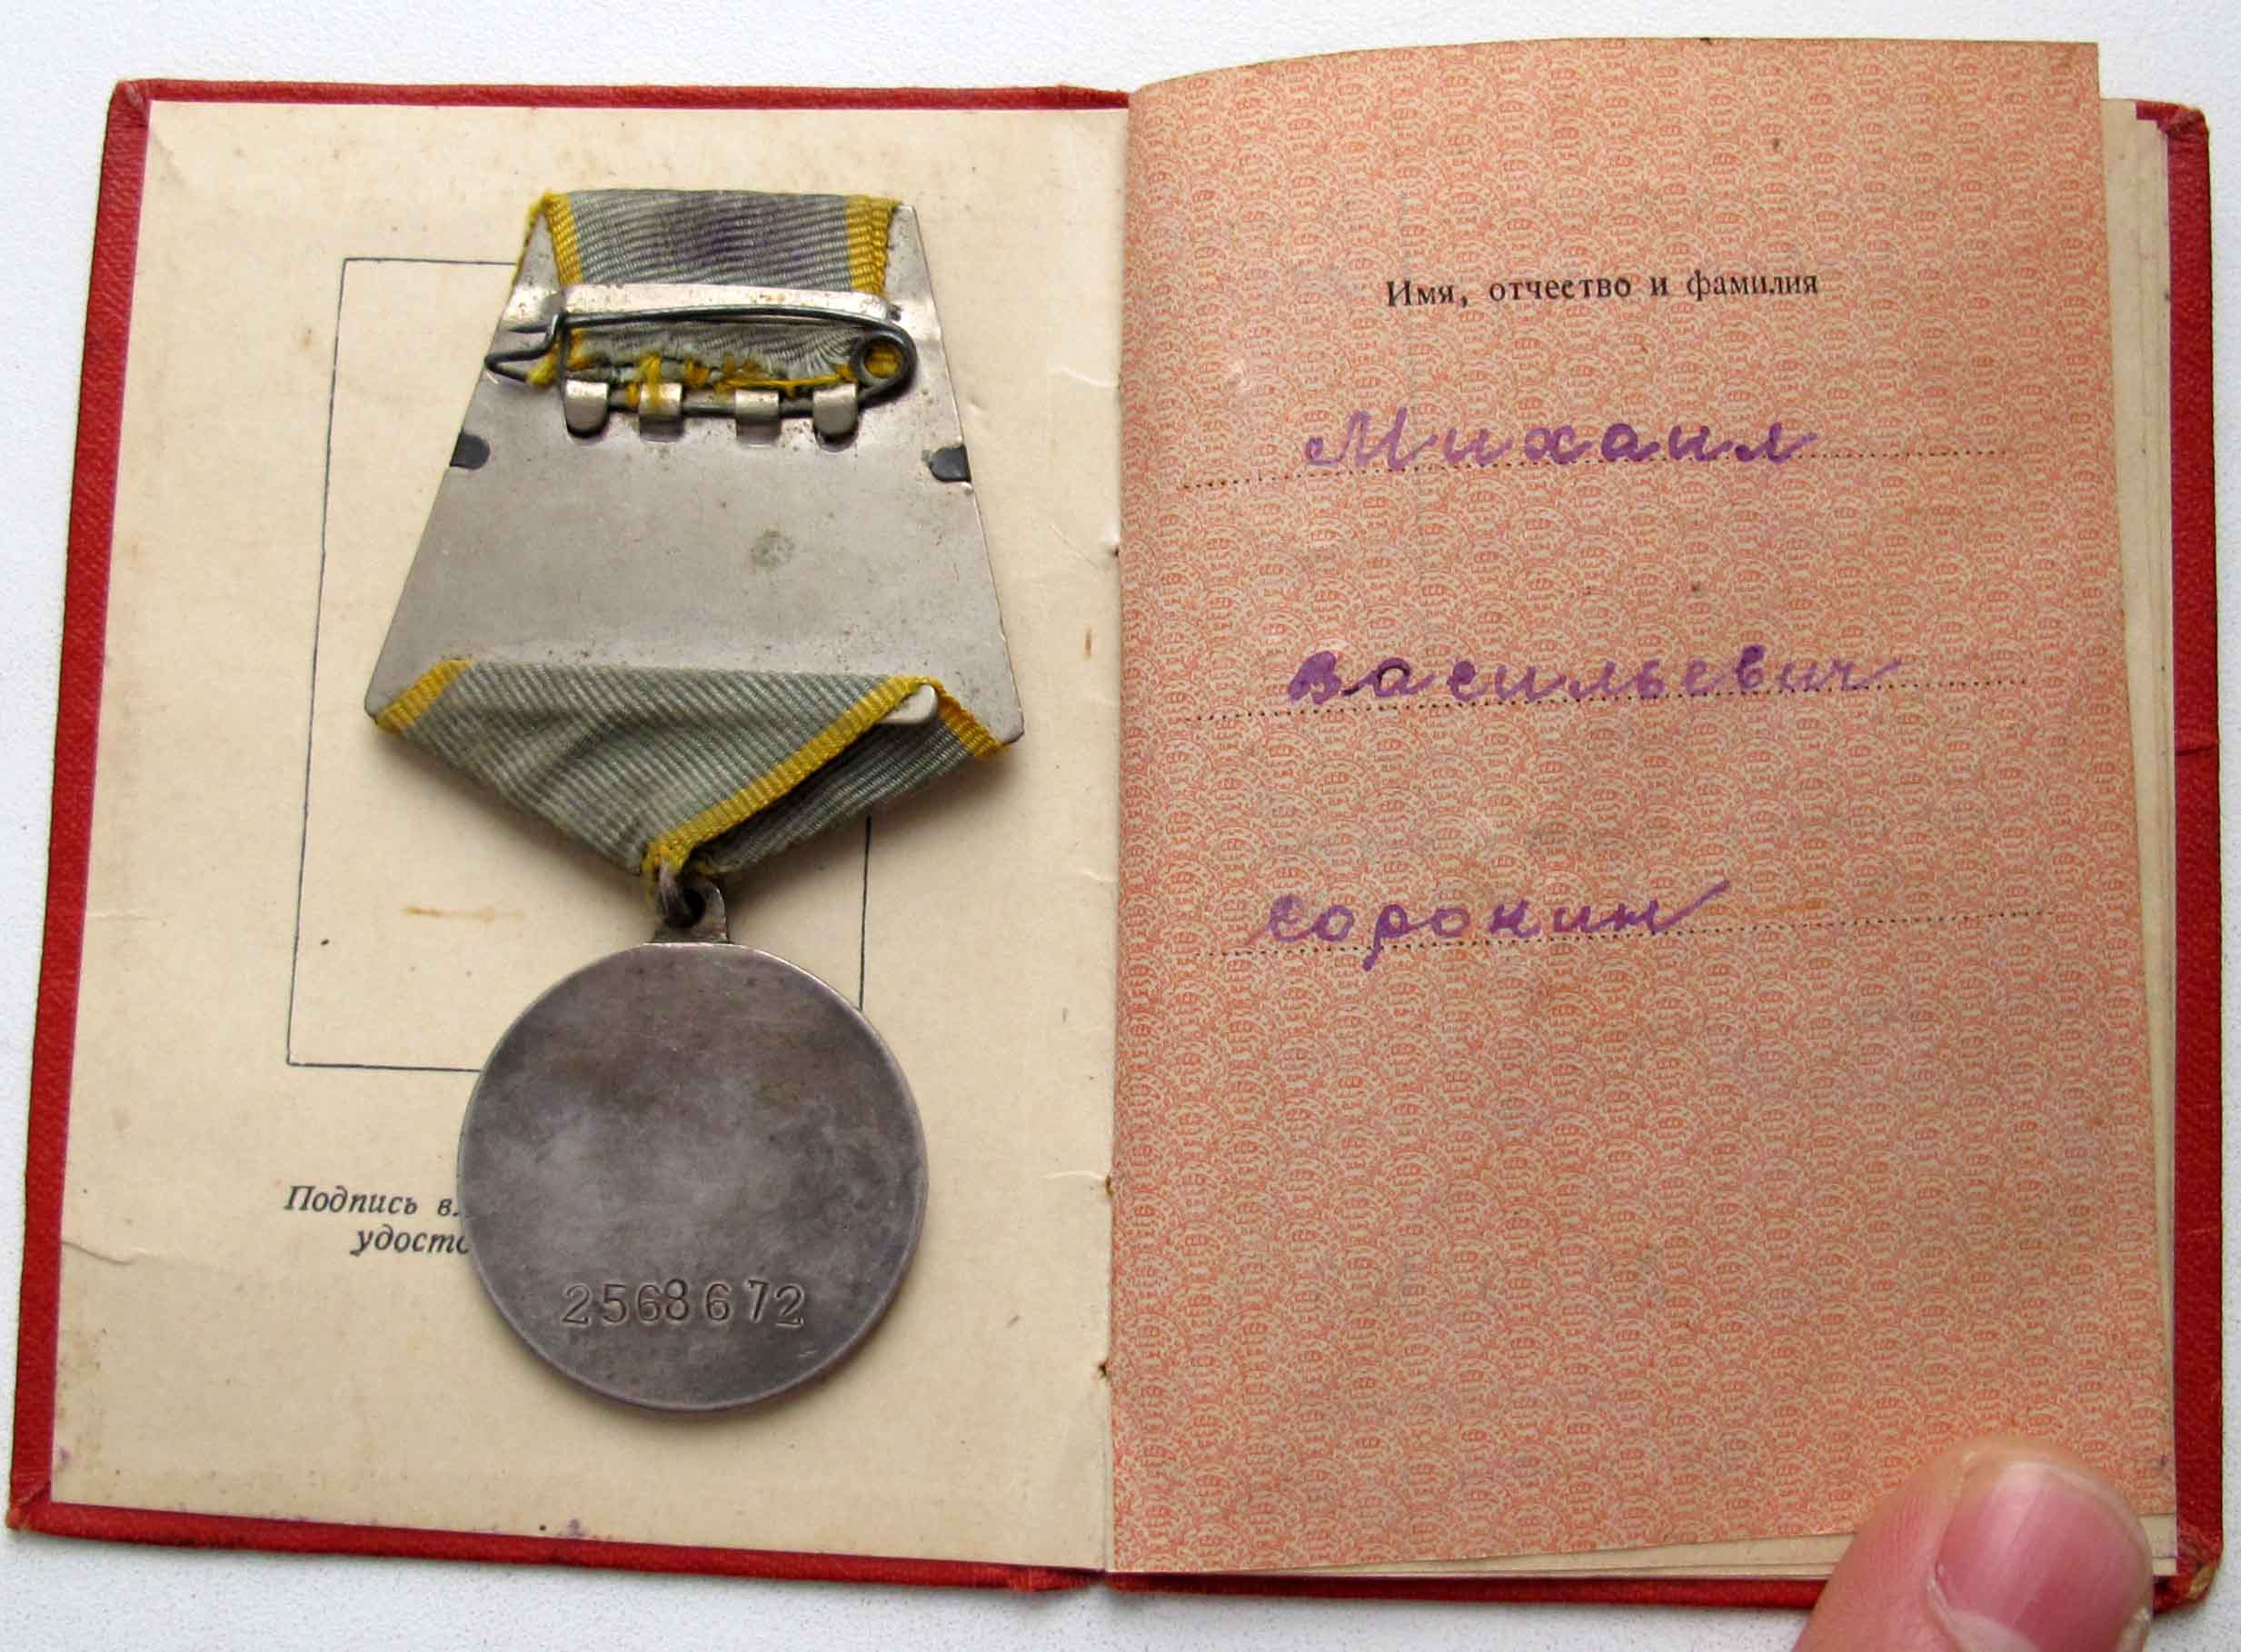 Подпись вл
удосто
2568672
Имя, отчество и фамилия
Михаил
Васильевич
Сорокин